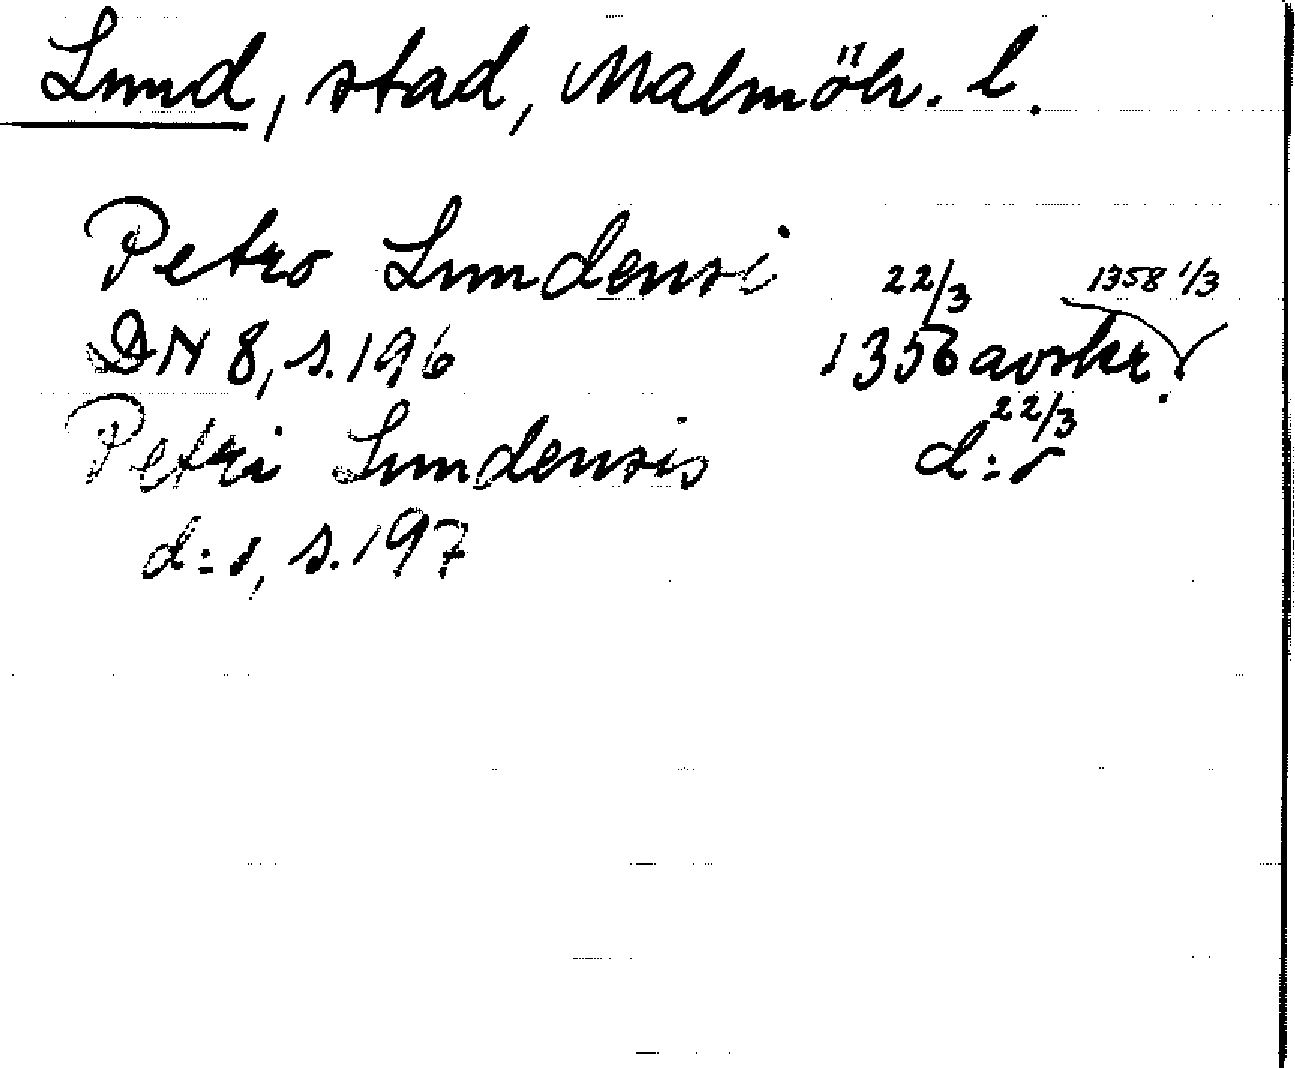 Lund, stad, Malmöh. l.
Petro Lundensi 22/3 1358 1/3
DN 8, s. 196 1356 avskr.
Petri Lundensis d:o 22/3
d:o, s. 197